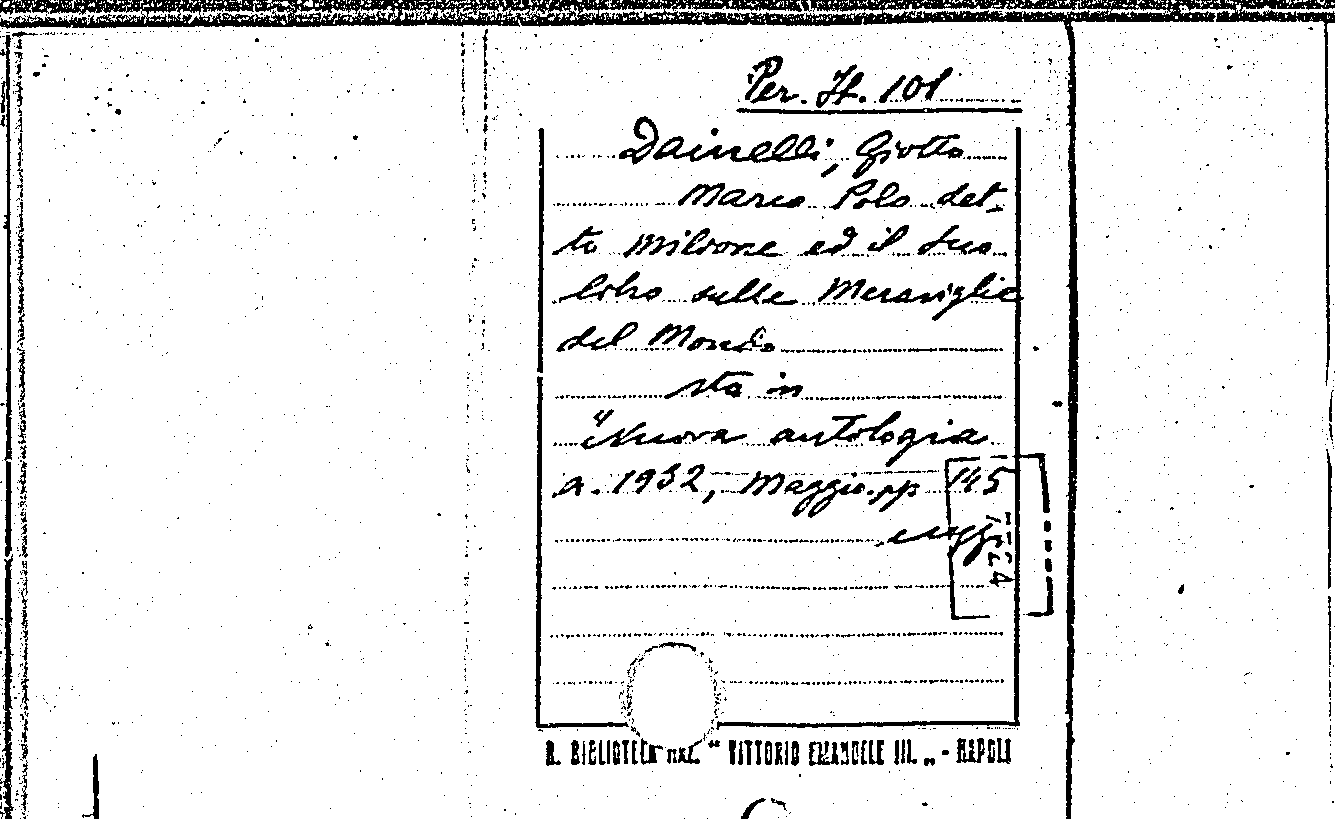 Per. It. 101
Dainelli, Giotto
Marco Polo det-
to Milione ed il suo
libro sulle Meraviglie
del Mondo
sta in
"Nuova antologia
a. 1932, Maggio. pp 145
R. BIBLIOTECA NAZ. " VITTORIO EMANUELE III. „ - NAPOLI